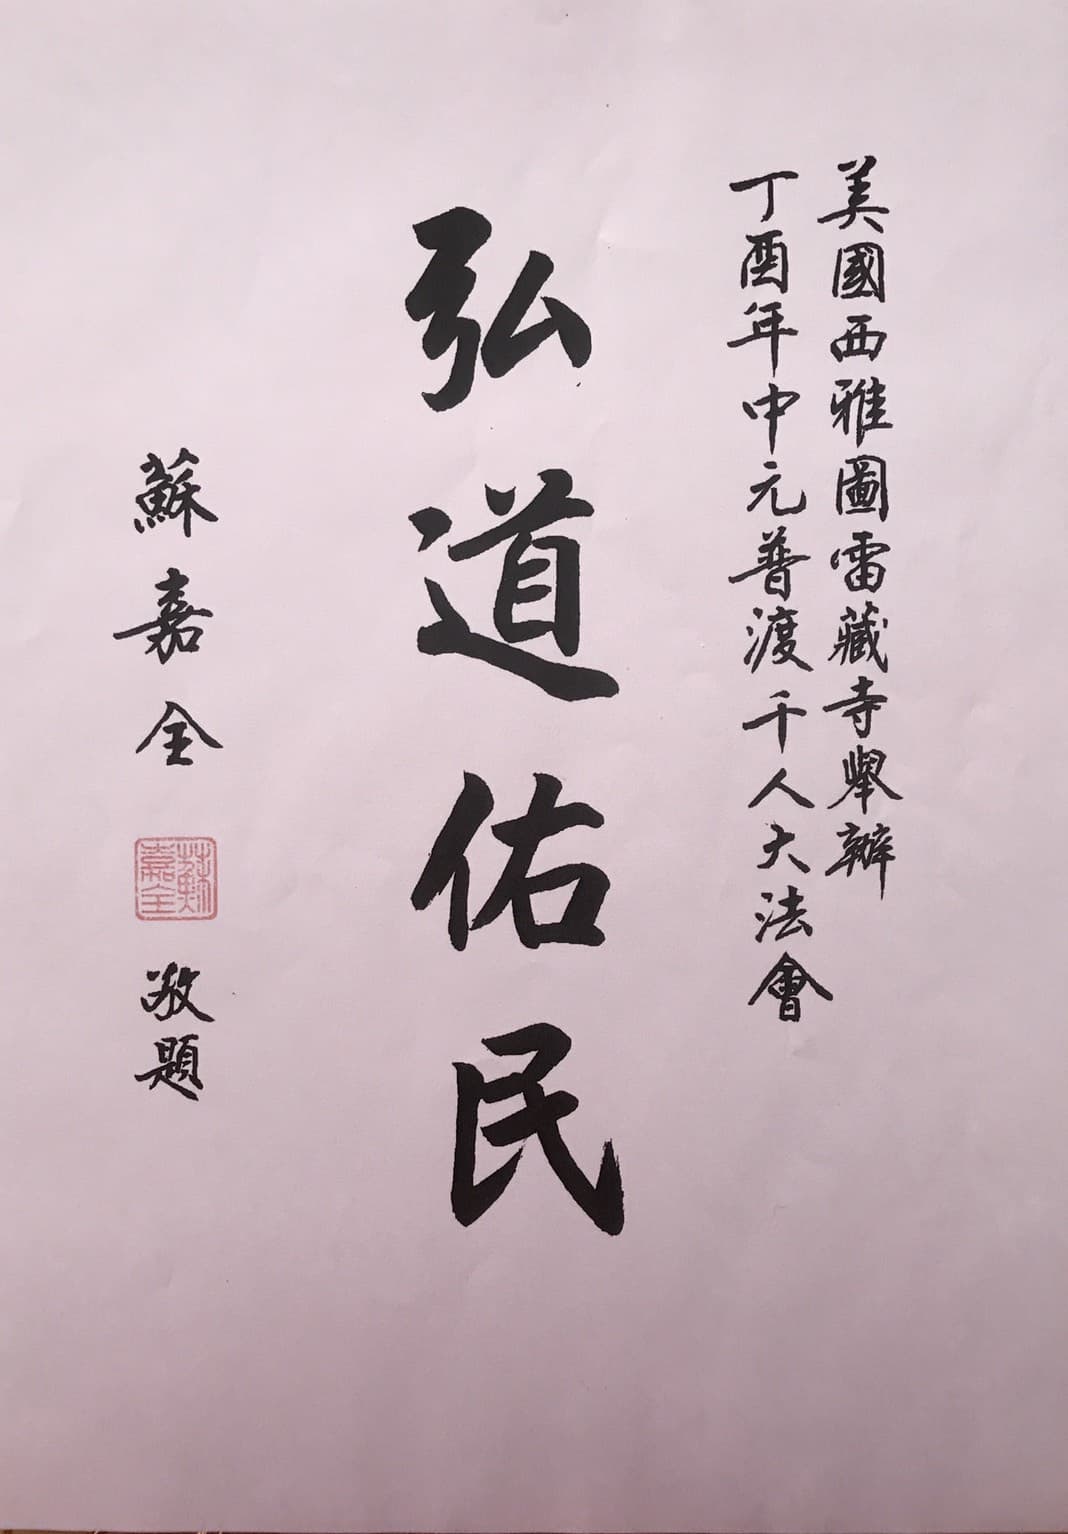 美國西雅圖雷藏寺舉辦
丁酉年中元普渡千人大法會
弘道佑民
蘇嘉全
蘇嘉全
敬題